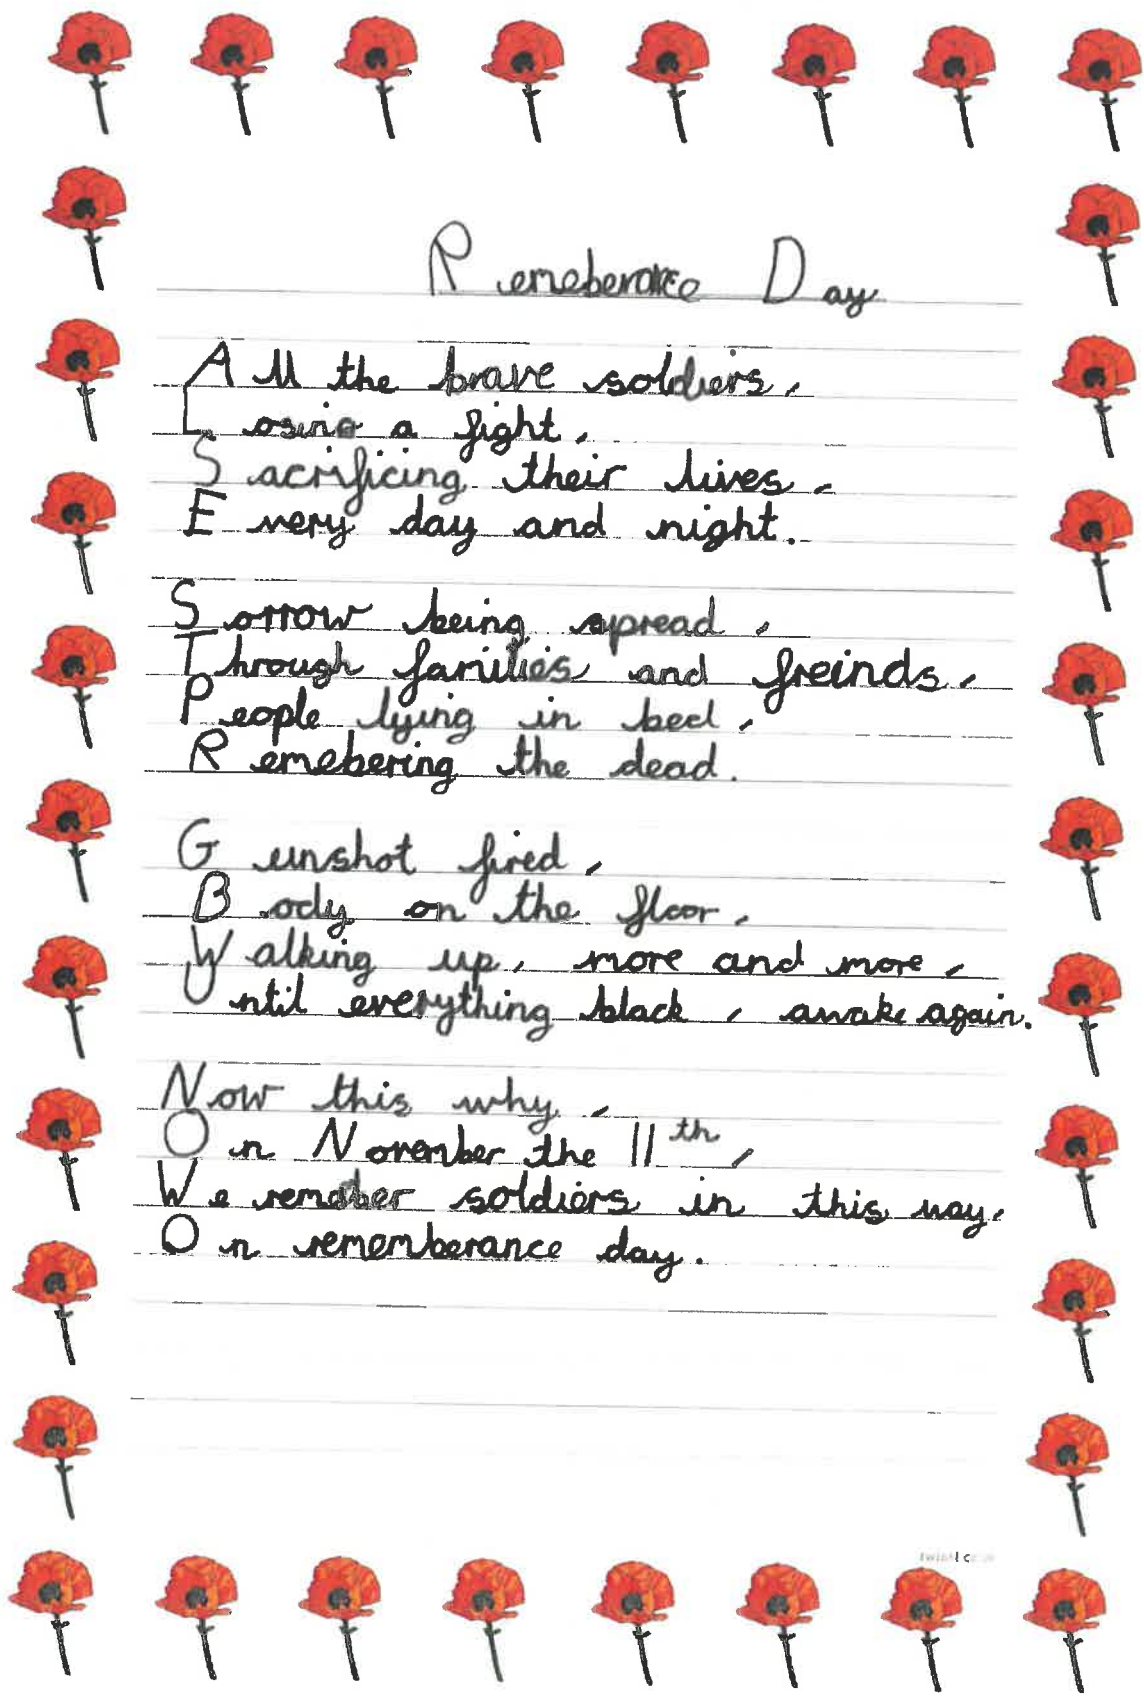 Remeberance Day
All the brave soldiers,
Losing a fight,
Sacrificing their lives,
Every day and night.
Sorrow being spread,
Through families and freinds,
People lying in bed,
Remebering the dead.
Gunshot fired,
Body on the floor,
Walking up, more and more,
Until everything black, awake again.
Now this why,
On November the 11th,
We remeber soldiers in this way,
On rememberance day.